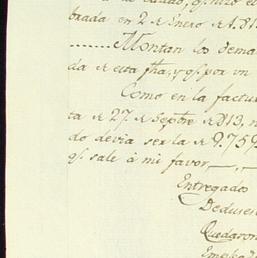 brada en 2 de Enero de 181
........ Montan los dema
da de esta fha, y qe. por un
Como en la factur
ta de 27 de Septre de 813, n
do devia ser la de 9.759
qe. sale á mi favor,
Entregado
Deduses
Quedaron